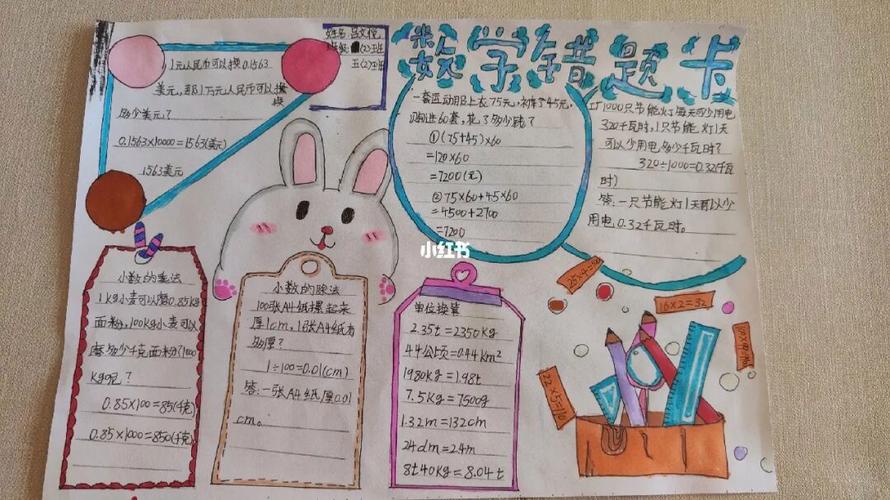 数学错题卡
姓名 吕文悦
班级 五(2)班
五(2)班
1元人民币可以换0.1563
美元,那1万元人民币可以换
多少美元?
0.1563×10000=1563(美元)
1563美元
一套运动服上衣75元,裤子45元,
购进60套,花了多少钱?
①(75+45)×60
=120×60
=7200(元)
②75×60+45×60
=4500+2700
=7200
1000只节能灯每天可少用电
320千瓦时,1只节能灯1天
可以少用电多少千瓦时?
320÷1000=0.32(千瓦
时)
答:一只节能灯1天可以少
用电0.32千瓦时。
小数的乘法
1kg小麦可以磨0.85kg
面粉,100kg小麦可以
磨多少千克面粉?1000
kg呢?
0.85×100=85(千克)
0.85×1000=850(千克)
小数的除法
100张A4纸摞起来
厚1cm,1张A4纸有
多厚?
1÷100=0.01(cm)
答:一张A4纸厚0.01
cm。
小红书
单位换算
2.35t=2350kg
44公顷=0.44km²
1980kg=1.98t
7.5kg=7500g
1.32m=132cm
24dm=2.4m
8t40kg=8.04t
16×2=32